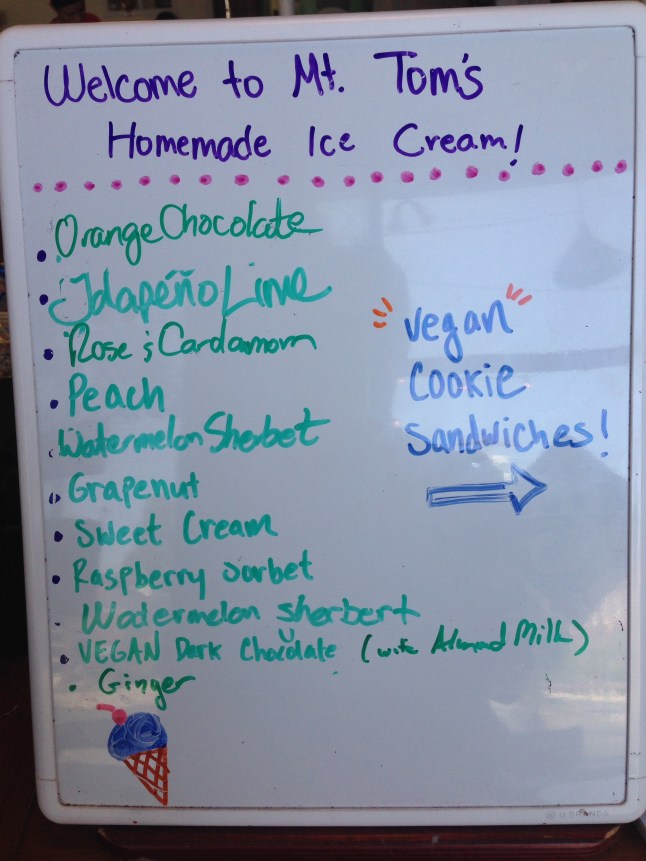 Welcome to Mt. Tom's
Homemade Ice Cream!
Orange Chocolate
Jalapeño Lime
Rose & Cardamom
Peach
Watermelon Sherbet
Grapenut
Sweet Cream
Raspberry sorbet
Watermelon sherbert
VEGAN Dark Chocolate (with Almond Milk)
Ginger
vegan
Cookie
Sandwiches!
U BRANDS